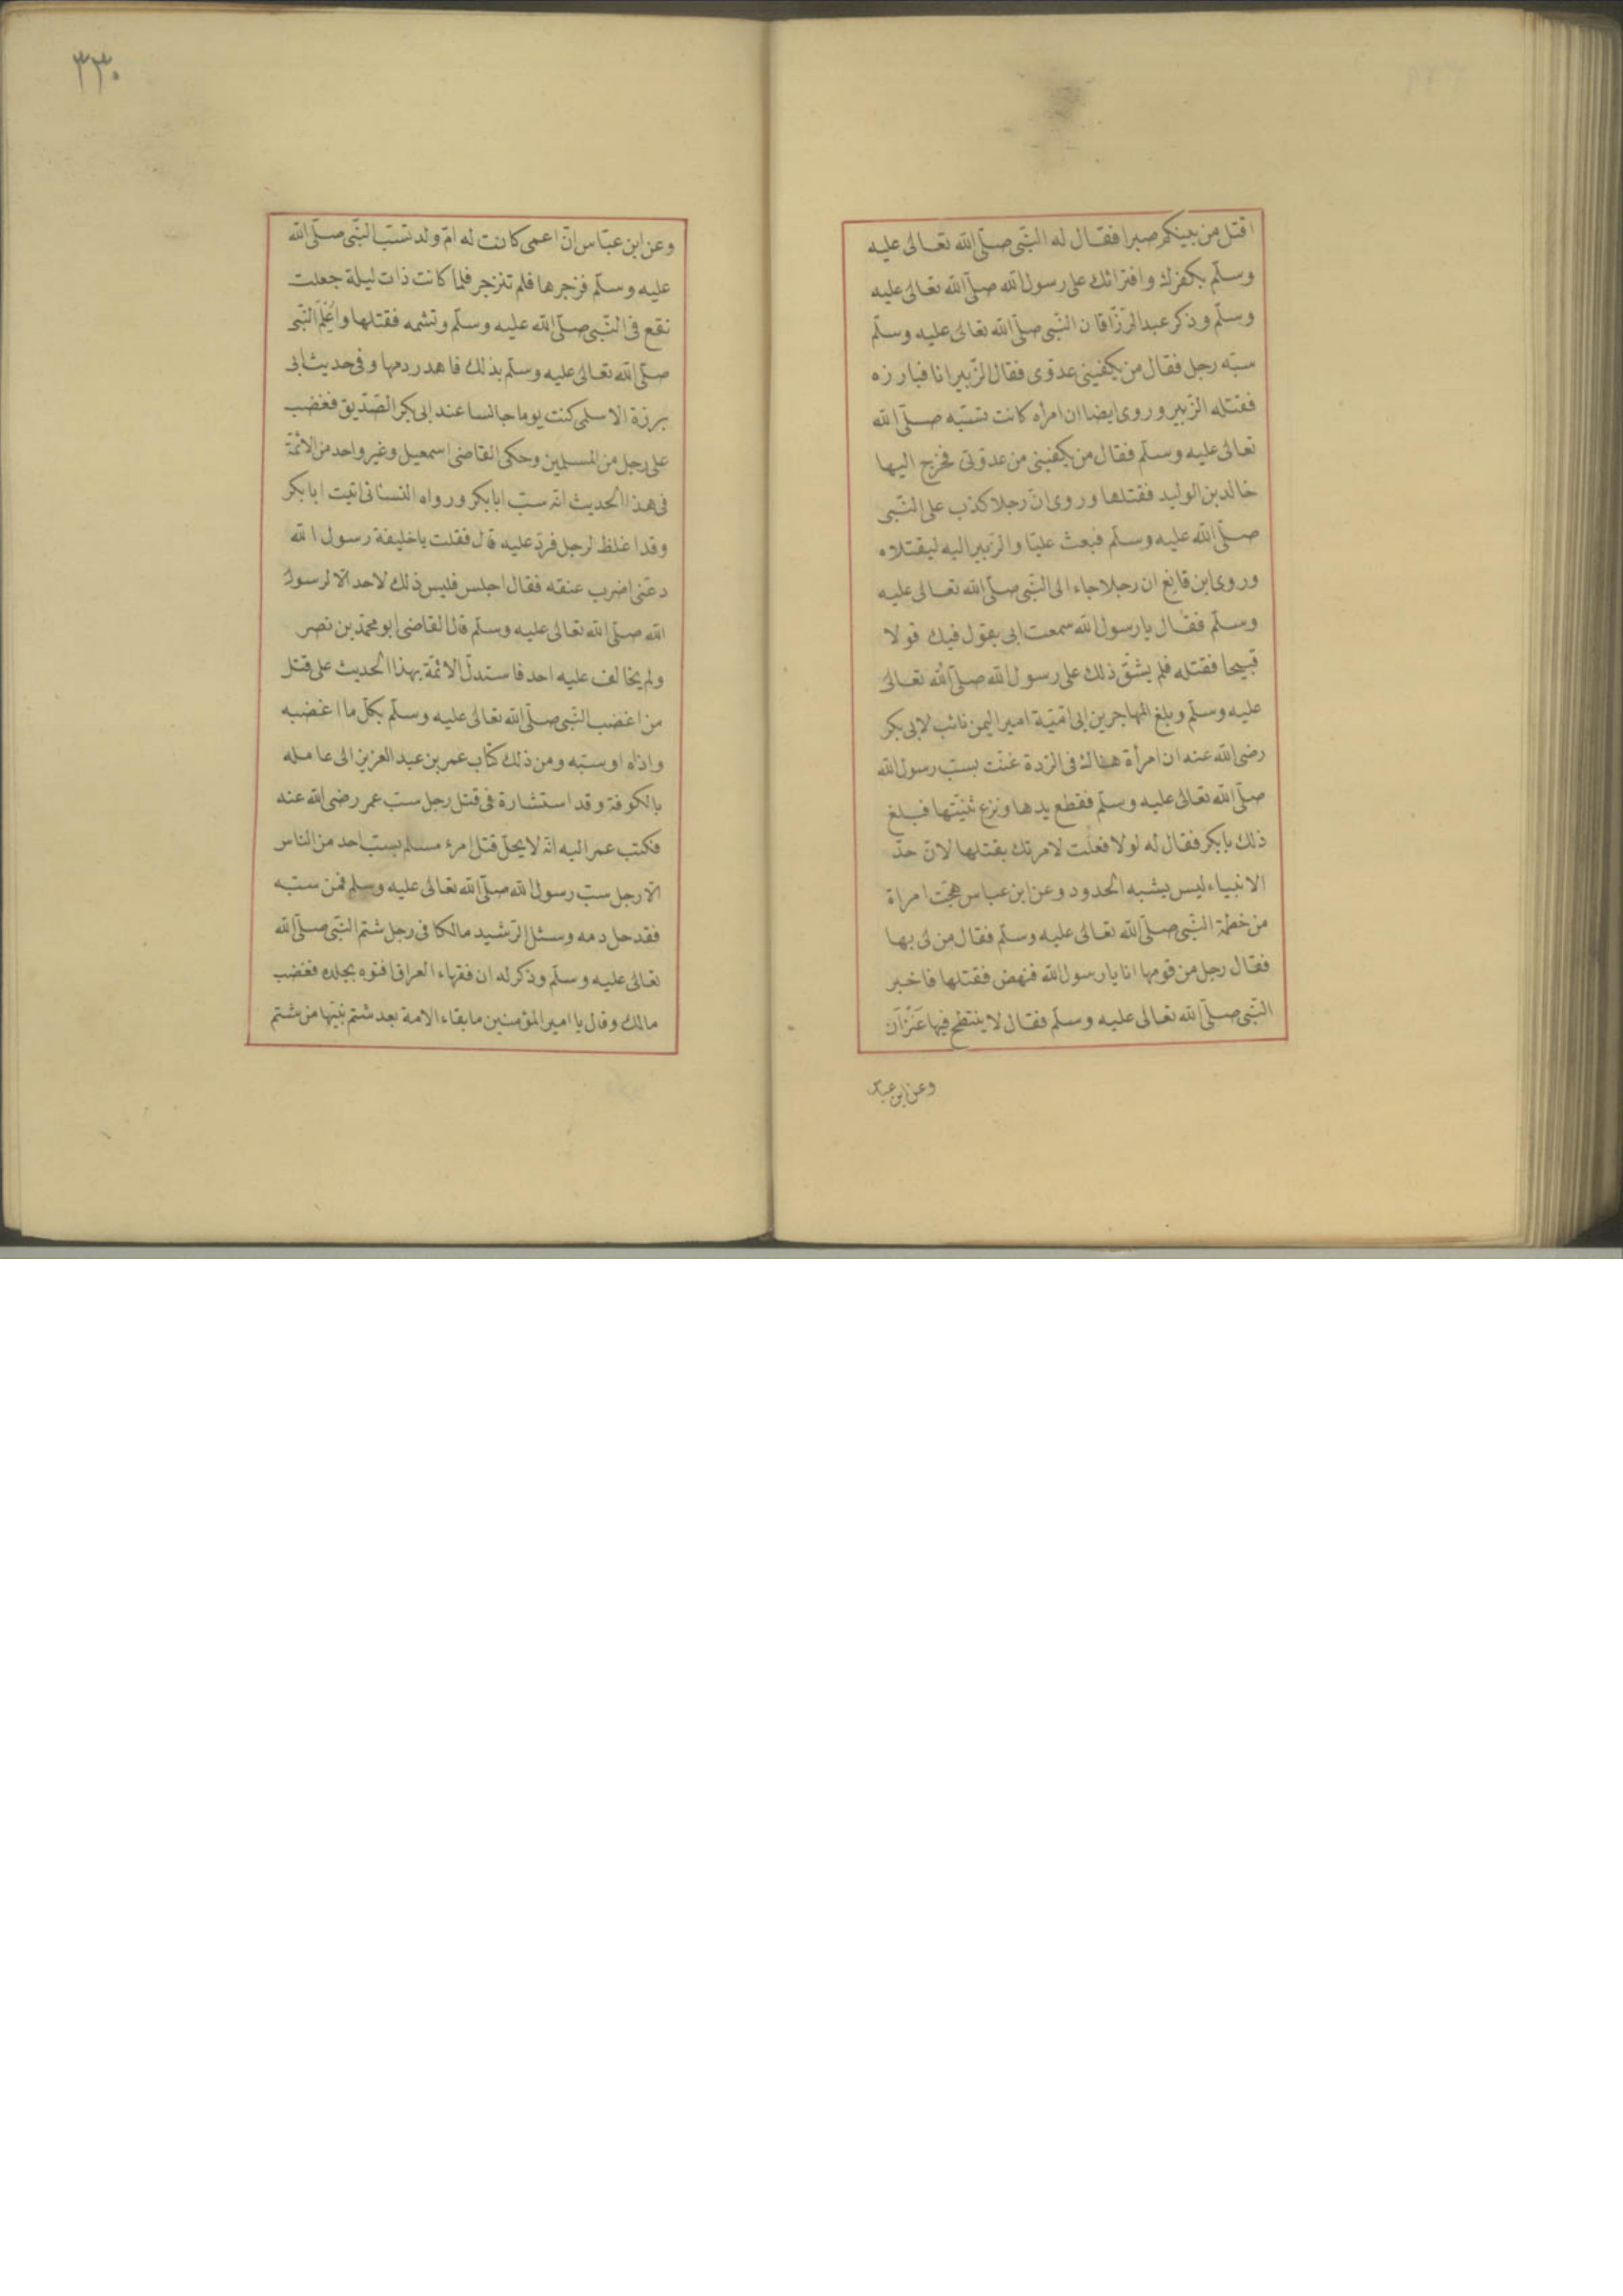 اقتل من بينكم صبرا فقال له النّبى صلّى الله تعالى عليه
وسلّم بكفرك وافترائك على رسول الله صلّى الله تعالى عليه
وسلّم وذكر عبد الرّزّاق ان النّبى صلّى الله تعالى عليه وسلّم
سبّه رجل فقال من يكفينى عدوّى فقال الزّبير انا فبارزه
فقتله الزّبير وروى ايضا ان امرأه كانت تسبّه صلّى الله
تعالى عليه وسلّم فقال من يكفينى من عدوّتى فخرج اليها
خالد بن الوليد فقتلها وروى انّ رجلا كذب على النّبى
صلّى الله عليه وسلّم فبعث عليّا والزّبير اليه ليقتلاه
وروى ابن قانع ان رجلا جاء الى النّبى صلّى الله تعالى عليه
وسلّم فقال يا رسول الله سمعت ابى يقول فيك قولا
قبيحا فقتله فلم يشقّ ذلك على رسول الله صلّى الله تعالى
عليه وسلّم وبلغ المهاجر بن ابى اميّة امير اليمن نائب لابى بكر
رضى الله عنه ان امرأة هناك فى الرّدة غنّت بسبّ رسول الله
صلّى الله تعالى عليه وسلّم فقطع يدها ونزع ثنيّتها فبلغ
ذلك بابكر فقال له لولا فعلت لامرتك بقتلها لانّ حدّ
الانبياء ليس يشبه الحدود وعن ابن عباس هجّت امراة
من خطمة النّبى صلّى الله تعالى عليه وسلّم فقال من لى بها
فقال رجل من قومها انا يا رسول الله فنهض فقتلها فاخبر
النّبى صلّى الله تعالى عليه وسلّم فقال لا ينتطح فيها عَنْزَان
وعن ابن عباس
٣٣٠
وعن ابن عبّاس انّ اعمى كانت له امّ ولد تسبّ النّبى صلّى الله
عليه وسلّم فزجرها فلم تنزجر فلمّا كانت ذات ليلة جعلت
تقع فى النّبى صلّى الله عليه وسلّم وتشتمه فقتلها واُعْلِمَ النّبى
صلّى الله تعالى عليه وسلّم بذلك فاهدر دمها وفى حديث ابى
برزة الاسلمى كنت يوما جالسا عند ابى بكر الصّدّيق فغضب
على رجل من المسلمين وحكى القاضى اسمعيل وغير واحد من الائمّة
فى هذا الحديث انّه سبّ ابابكر ورواه النسائى اتيت ابابكر
وقد اغلظ لرجل فردّ عليه قال فقلت يا خليفة رسول الله
دعنى اضرب عنقه فقال اجلس فليس ذلك لاحد الّا لرسول
الله صلّى الله تعالى عليه وسلّم قال القاضى ابو محمّد بن نصر
ولم يخالف عليه احد فاستدلّ الائمّة بهذا الحديث على قتل
من اغضب النّبى صلّى الله تعالى عليه وسلّم بكلّ ما اغضبه
واذاه او سبّه ومن ذلك كتاب عمر بن عبد العزيز الى عامله
بالكوفة وقد استشارة فى قتل رجل سبّ عمر رضى الله عنه
فكتب عمر اليه انّه لا يحلّ قتل امرء مسلم بسبّ احد من الناس
الّا رجل سبّ رسول الله صلّى الله تعالى عليه وسلم فمن سبّه
فقد حل دمه وسئل الرّشيد مالكا فى رجل شتم النّبى صلّى الله
تعالى عليه وسلّم وذكر له ان فقهاء العراق افتوه بجلده فغضب
مالك وقال يا امير المؤمنين ما بقاء الامة بعد شتم نبيّها من شتم